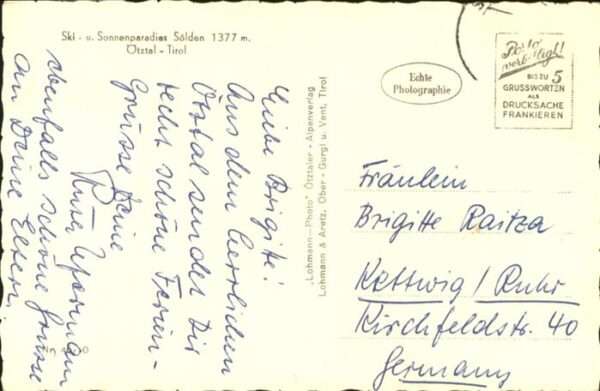 Ski - u. Sonnenparadies Sölden 1377 m.
Ötztal - Tirol
Liebe Brigitte!
Aus dem herrlichen
Ötztal sendet Dir
recht schöne Ferien-
Grüsse Deine
ebenfalls schöne Grüsse
an Deine Eltern.
"Lohmann-Photo" Ötztaler - Alpenverlag
Lohmann & Aretz, Ober - Gurgl u. Vent, Tirol
Echte
Photographie
Porto
verbilligt!
BIS ZU 5
GRUSSWORTEN
ALS
DRUCKSACHE
FRANKIEREN
Fräulein
Brigitte Raitza
Kettwig/Ruhr
Kirchfeldstr. 40
Germany